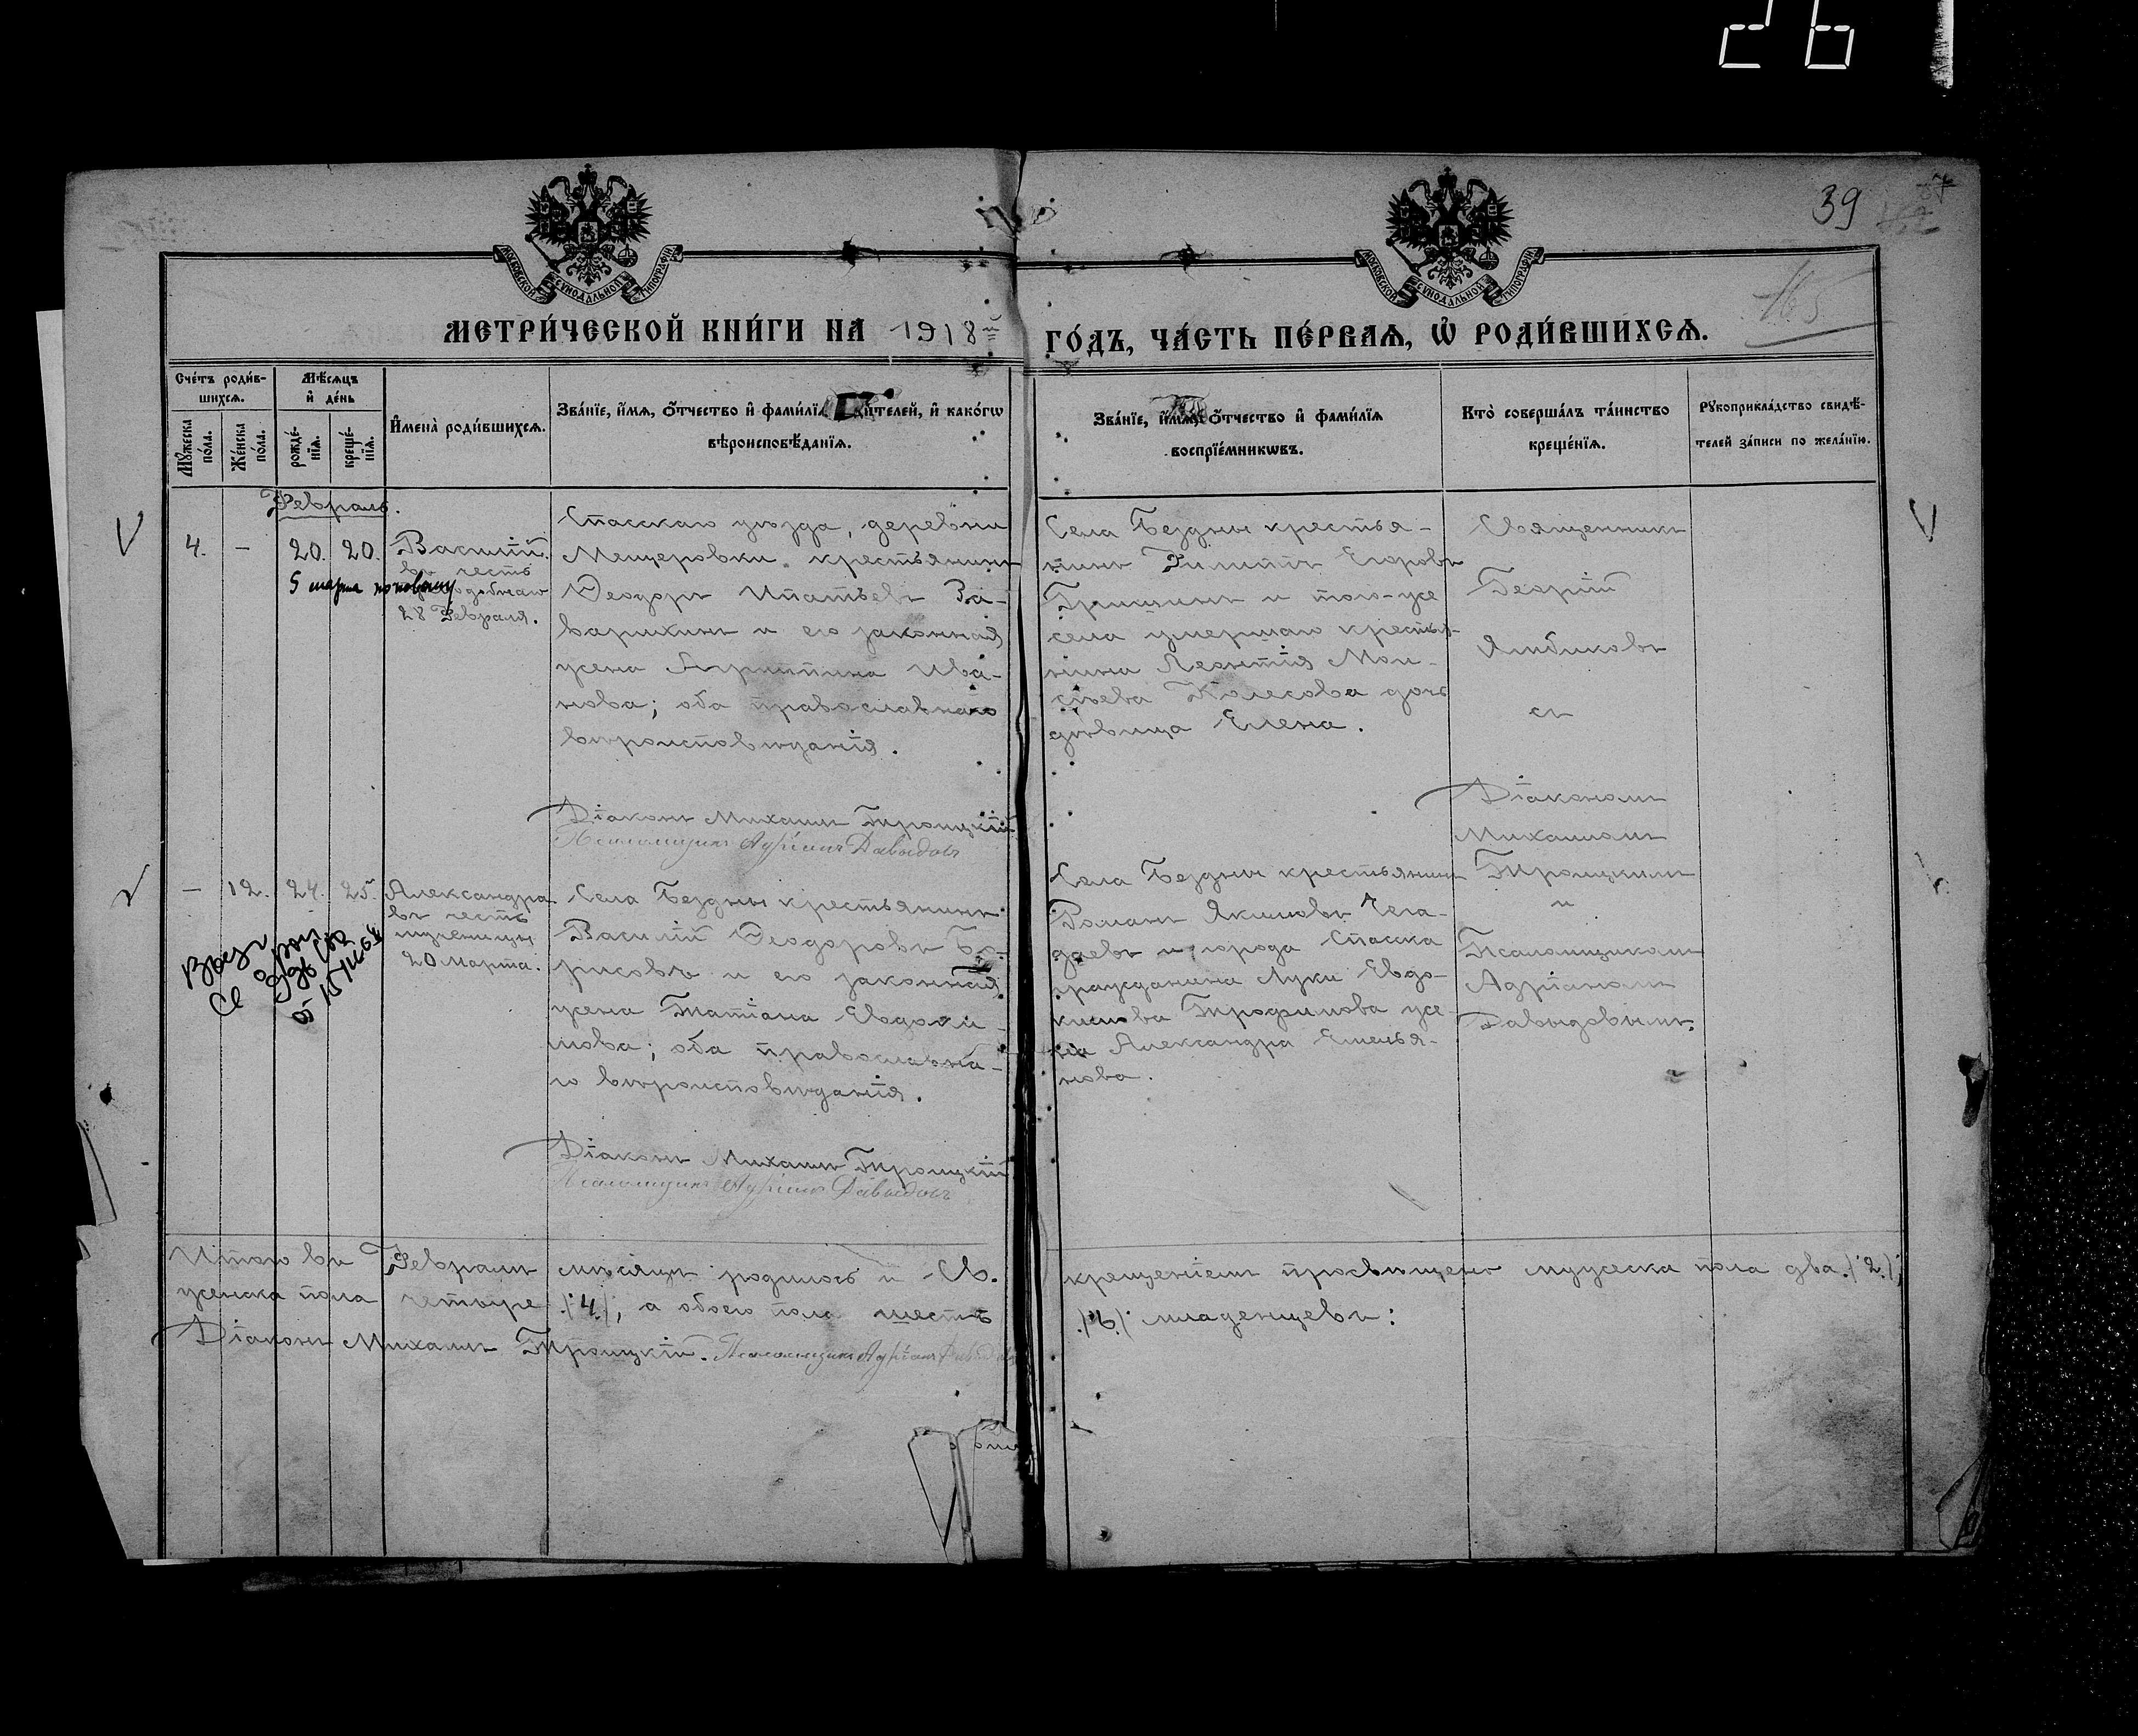 26
39
165
МОСКОВСКОЙ СѴНОДАЛЬНОЙ ТИПОГРАФІИ
МОСКОВСКОЙ СѴНОДАЛЬНОЙ ТИПОГРАФІИ
МЕТРИ́ЧЕСКОЙ КНИ́ГИ НА 1918й ГО́ДЪ, ЧА́СТЬ ПЕ́РВАѦ, Ѡ҆ РОДИ́ВШИХСѦ.
Сче́тъ роди́в-
шихсѧ.
Мꙋ́жеска по́ла.
Же́нска по́ла.
Мѣ́сѧцъ
и҆ де́нь
рожде́-
нїѧ.
креще́-
нїѧ.
И҆мена̀ роди́вшихсѧ.
Зва́нїе, и҆́мѧ, ѻ҆́тчество и҆ фами́лїѧ родителей, и҆ како́гѡ
вѣроисповѣ́данїѧ.
Зва́нїе, и҆́мѧ, ѻ҆́тчество и҆ фами́лїѧ
воспрїе́мникѡвъ.
Кто̀ соверша́лъ та́инство
креще́нїѧ.
Рꙋкоприкла́дство свидѣ́-
телей за́писи по жела́нїю.
Февраль.
4. – 20. 20. Василій.
въ честь
28 Февраля.
5 марта по новому
Спасскаго уѣзда, деревни
Мещеровки крестьянинъ
Ѳеодоръ Ипатьевъ За-
варихинъ и его законная
жена Агриппина Ива-
нова; оба православнаго
вѣроисповѣданія.
Діаконъ Михаилъ Троицкій
Псаломщикъ Адріанъ Давыдовъ
Села Бездны крестья-
нинъ Филиппъ Егоровъ
Гришинъ и того-же
села умершаго крестья-
нина Леонтія Мои-
сѣева Колесова дочь
дѣвица Елена.
Священникъ
Георгій
Ямбиковъ
съ
Діакономъ
Михаиломъ
Троицкимъ
и
Псаломщикомъ
Адріаномъ
Давыдовымъ.
– 12. 24. 25. Александра
въ честь
мученицы
20 Марта.
Села Бездны крестьянинъ
Василій Ѳеодоровъ Бо-
рисовъ и его законная
жена Татіана Евдоки-
мова; оба православна-
го вѣроисповѣданія.
Діаконъ Михаилъ Троицкій
Псаломщикъ Адріанъ Давыдовъ
Села Бездны крестьянинъ
Романъ Якимовъ Чега-
даевъ и города Спасска
гражданина Луки Евдо-
кимова Трофимова же-
на Александра Емелья-
нова.
Итого въ Февралѣ мѣсяцѣ родилось и Св. крещеніемъ просвѣщено мужеска пола два /:2:/;
женска пола четыре /:4:/, а обоего пола шесть /:6:/ младенцевъ:
Діаконъ Михаилъ Троицкій. Псаломщикъ Адріанъ Давыдовъ